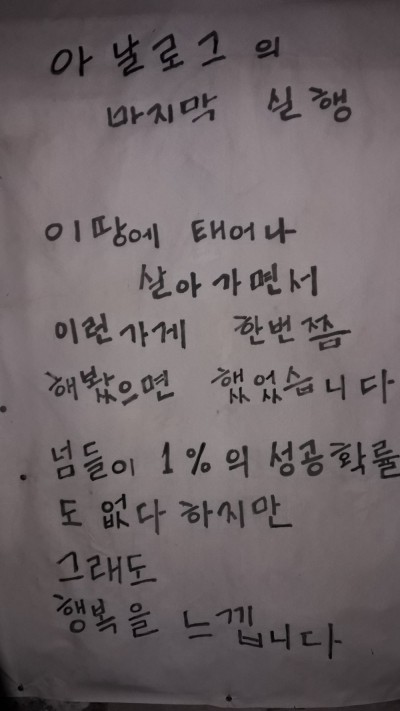 아날로그의
마지막 실행
이땅에 태어나
살아가면서
이런가게 한번쯤
해봤으면 했었습니다
넘들이 1%의 성공확률
도 없다 하지만
그래도
행복을 느낍니다